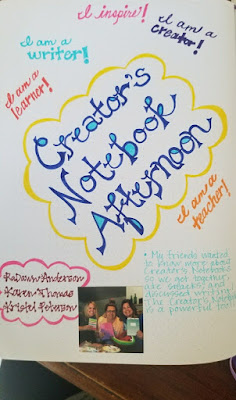 I inspire!
I am a
writer!
I am a
creator!
I am a
learner!
Creator's
Notebook
Afternoon
I am a
teacher!
RaDawn Anderson
Karen Thomas
Kristel Peterson
• My friends wanted
to know more about
Creator's Notebooks
so we got together
ate subway and
discussed writing!
The Creator's Notebook
is a powerful tool!